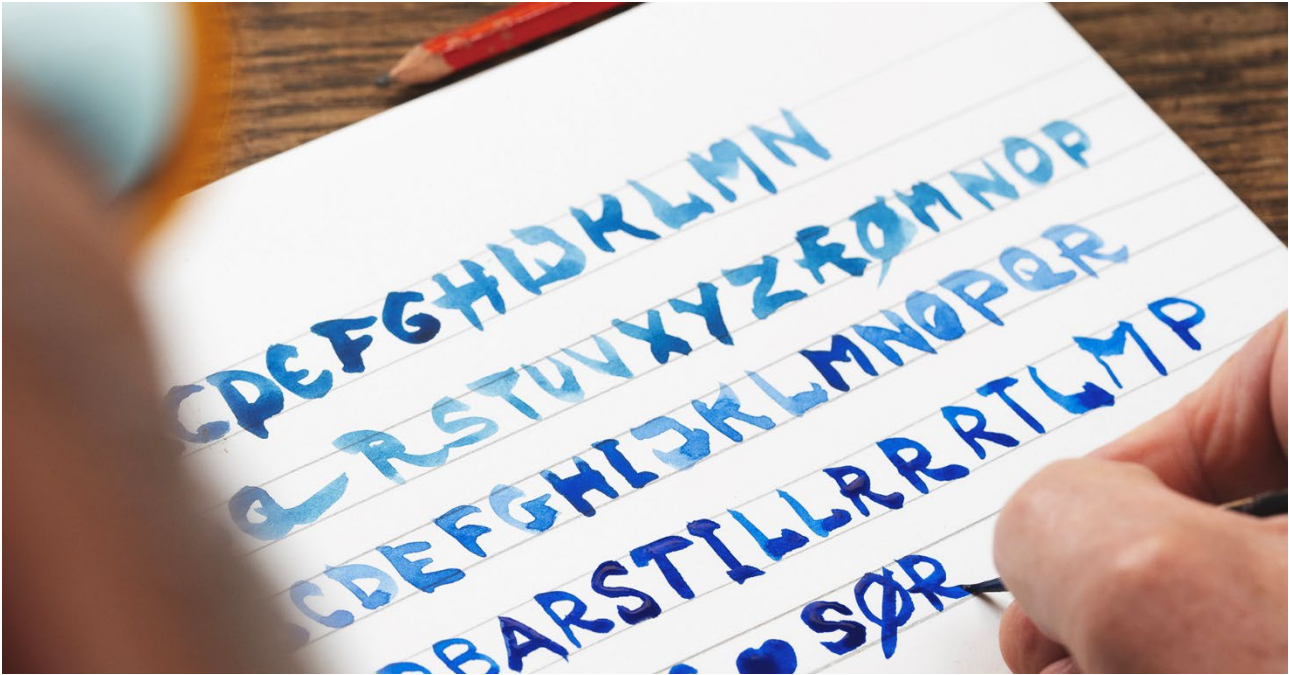 CDEFGHIJKLMN
QRSTUVXYZÆØMNOP
CDEFGHIJKLMNOPQR
BARSTILLRRRTLMP
♥ SØR